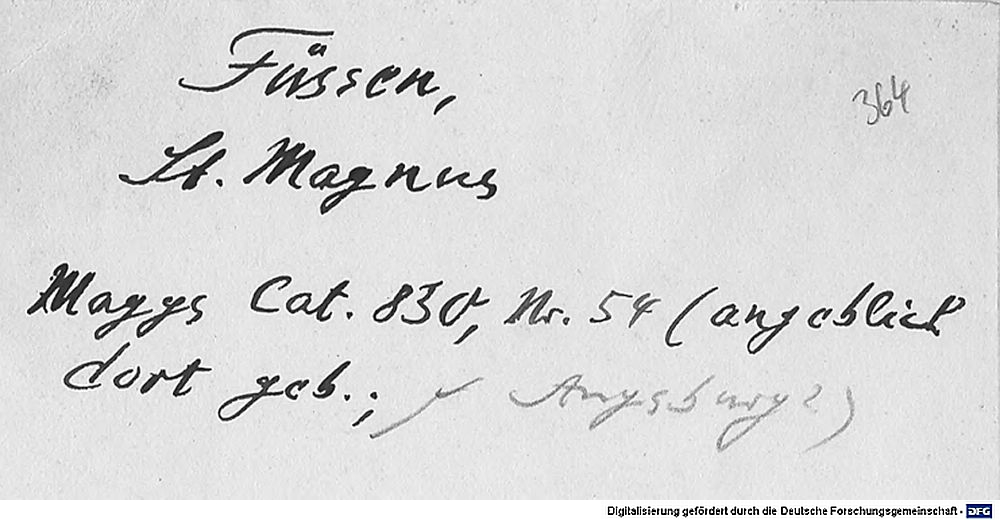 Füssen,
364
St. Magnus
Maggs Cat. 830, Nr. 54 (angeblich
dort geb.; Augsburg?)
Digitalisierung gefördert durch die Deutsche Forschungsgemeinschaft - DFG